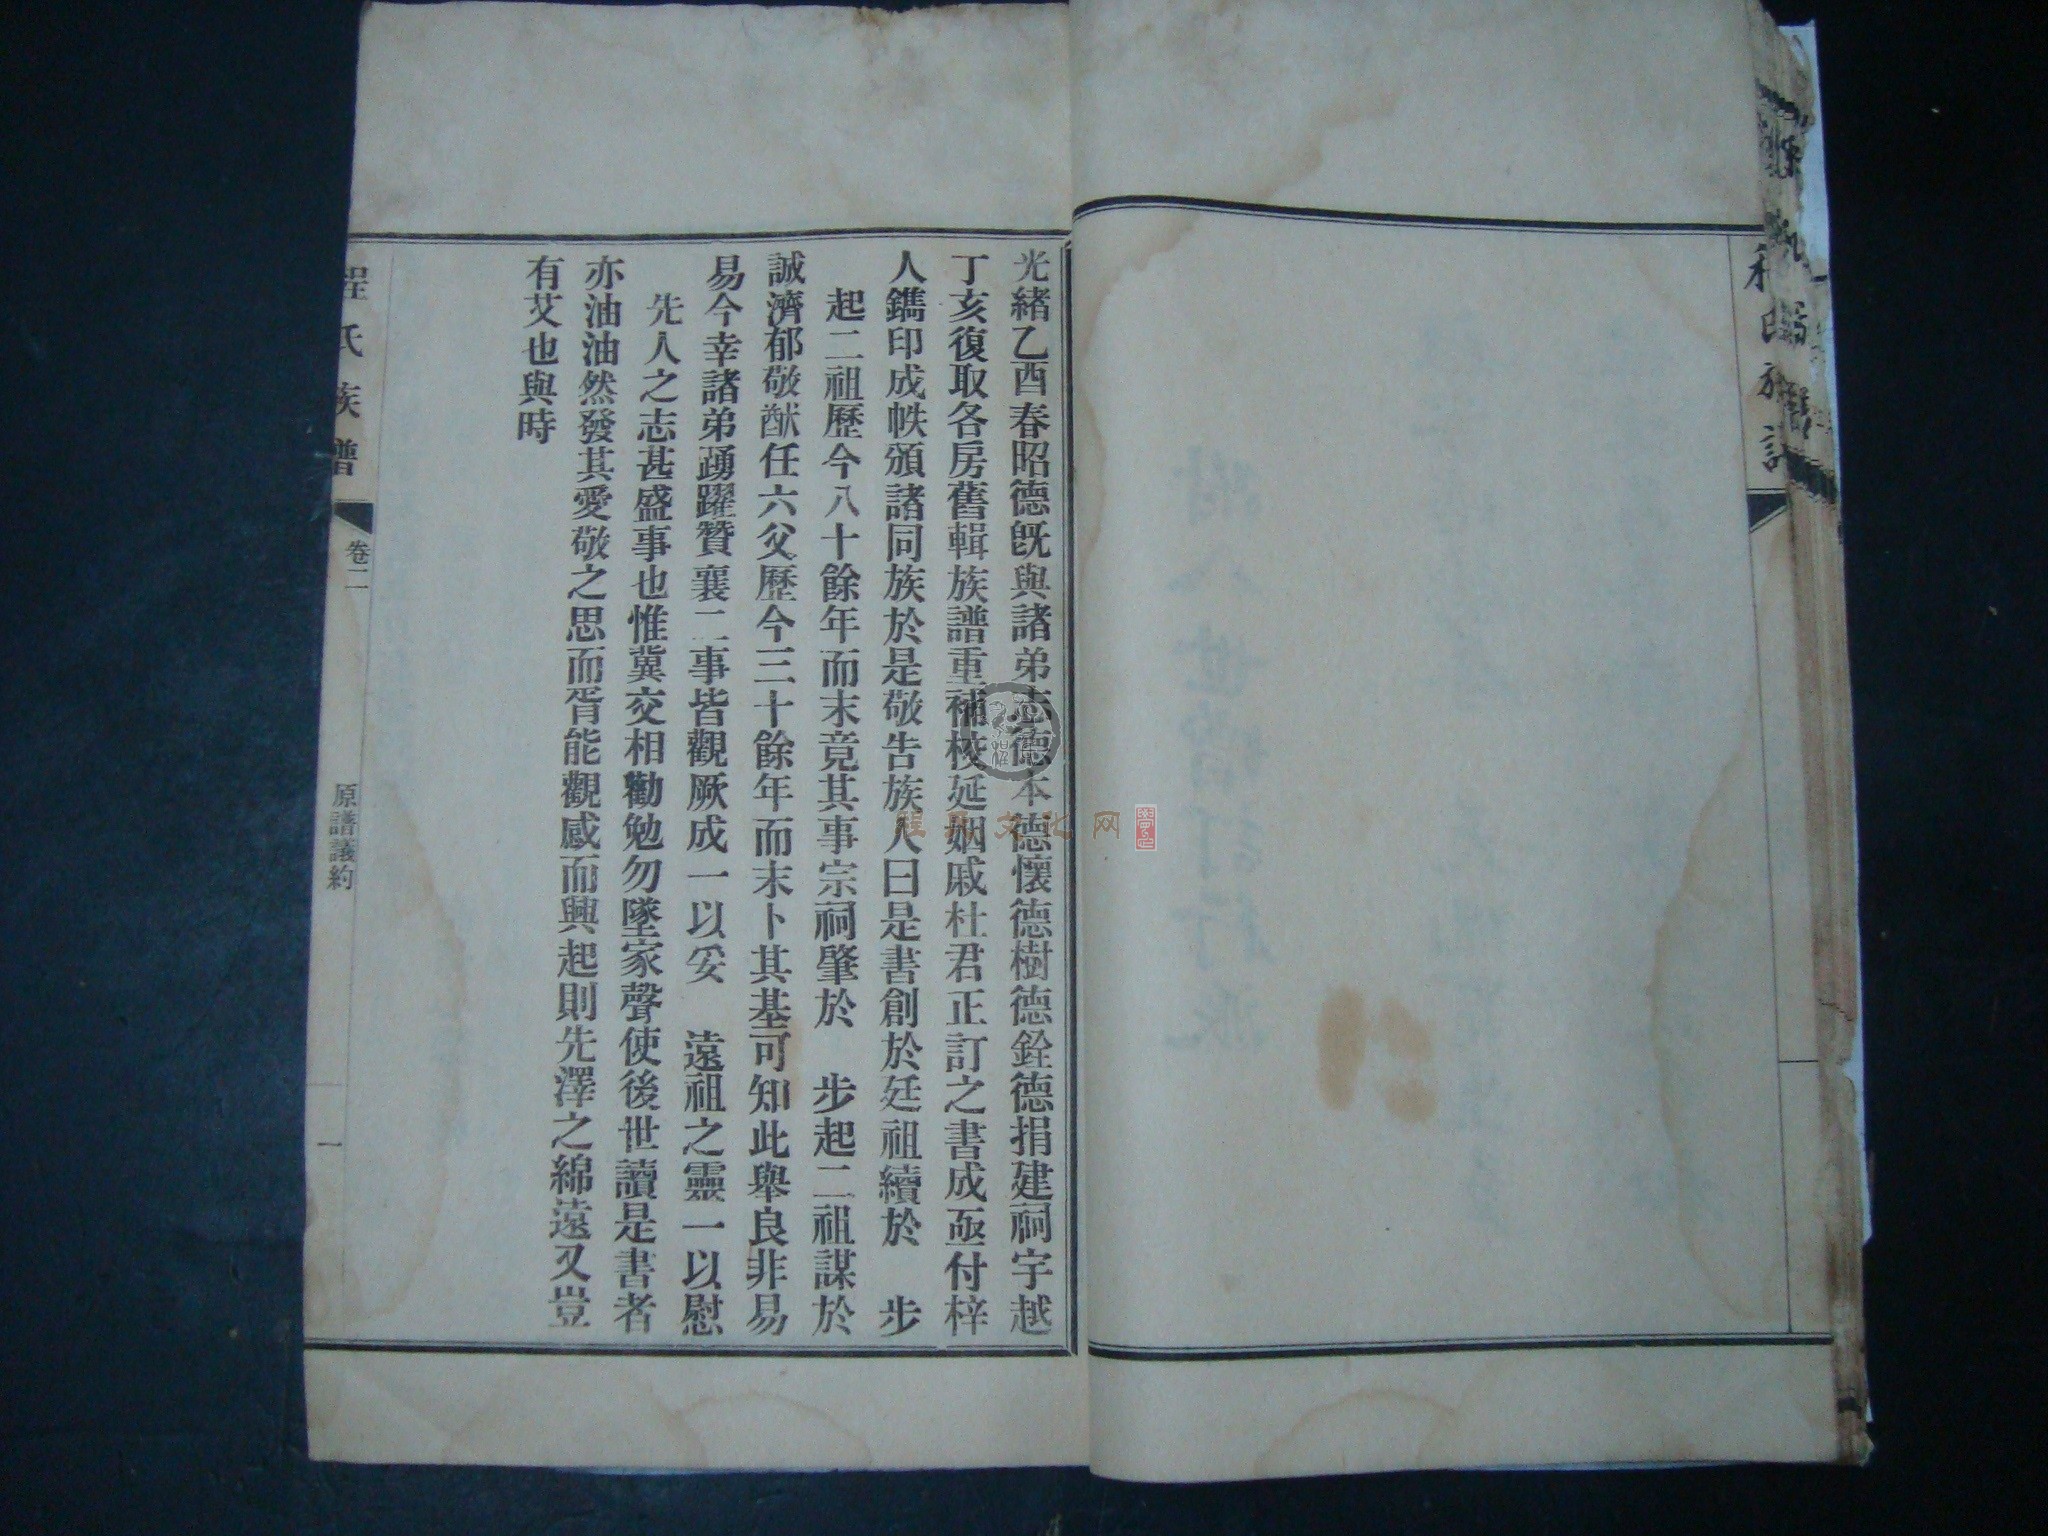 光緒乙酉春昭德旣與諸弟志德本德懷德樹德銓德捐建祠宇越
丁亥復取各房舊輯族譜重補校延姻戚杜君正訂之書成亟付梓
人鐫印成帙頒諸同族於是敬告族人曰是書創於廷祖續於 步
起二祖歷今八十餘年而末竟其事宗祠肇於 步起二祖謀於
誠濟郁敬猷任六父歷今三十餘年而末卜其基可知此舉良非易
易今幸諸弟踴躍贊襄二事皆觀厥成一以妥 遠祖之靈一以慰
先人之志甚盛事也惟冀交相勸勉勿墜家聲使後世讀是書者
亦油油然發其愛敬之思而胥能觀感而興起則先澤之綿遠又豈
有艾也與時
程氏族譜
卷二
原譜議約
一
程氏文化网